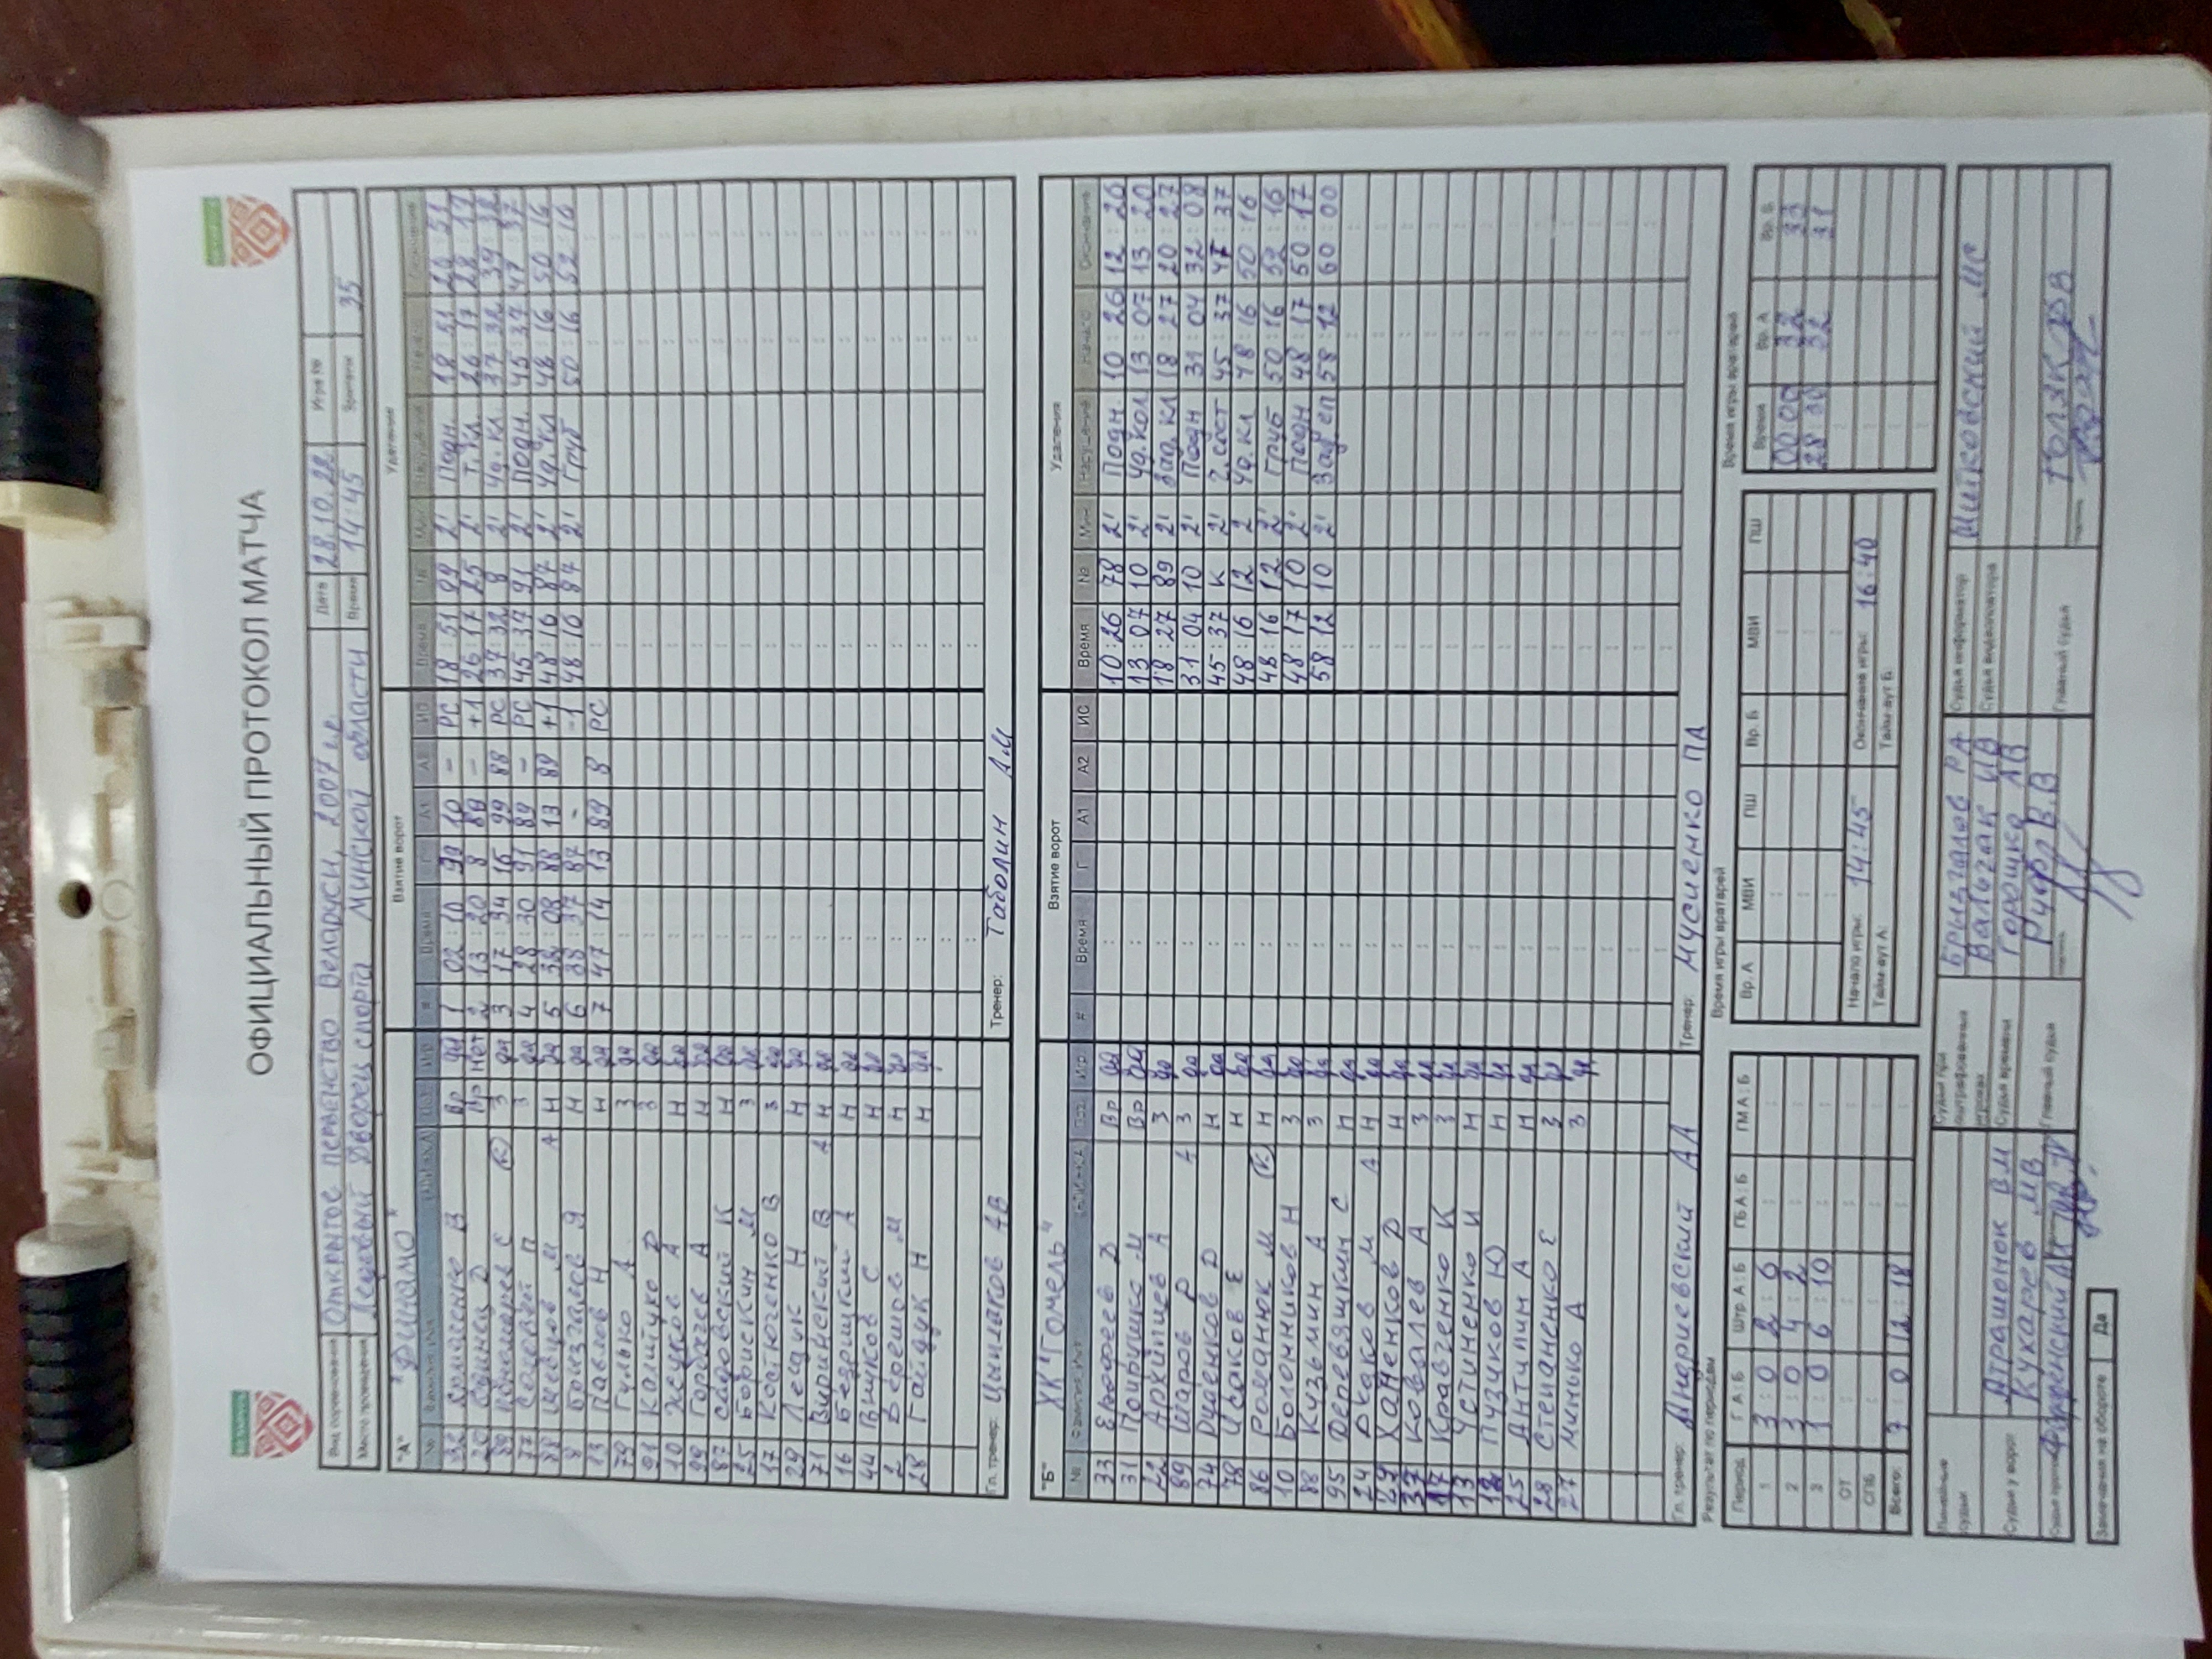 ОФИЦИАЛЬНЫЙ ПРОТОКОЛ МАТЧА
Вид соревнования Открытое первенство Беларуси, 2007 г.р. Дата 28.10.22 Игра №
Место проведения Ледовый Дворец спорта Минской области Время 14:45 Зрители 35
"А" "Динамо" Взятие ворот Удаления
№ Поз Игр # Время Г А1 А2 ИС Время № Мин Нарушение Начало Окончание
Вр да 1 02:10 99 10 - РС 18:51 99 2' Подн. 18:51 20:51
20 Вр нет 2 13:20 8 89 - +1 26:17 25 2' 26:17 28:17
89 С (К) З да 3 17:34 16 99 88 РС 37:32 8 2' уд. кл. 37:32 39:32
77 П З да 4 28:30 91 89 - РС 45:37 91 2' Подн. 45:37 47:37
88 Шевцов М А Н да 5 38:08 88 13 89 +1 48:16 87 2' уд. кл 48:16 50:16
8 Брызгалов Я Н да 6 38:37 87 - -1 48:16 87 2' Груб 50:16 52:16
13 Павлов Н Н да 7 47:14 13 89 8 РС
79 Гулько А З да
91 З да
10 А Н да
99 Горбачев А Н да
87 Садовский К Н да
25 Борискин М З да
17 Костюченко В З да
29 Ледук Н Н да
71 В А Н да
16 Бедрицкий А Н да
44 Внуков С Н да
2 М Н да
28 Гайдук Н Н да
Гл. тренер: Цыплаков АВ Тренер: Таболин АМ
"Б" ХК "Гомель" Взятие ворот Удаления
№ Поз Игр # Время Г А1 А2 ИС Время № Мин Нарушение Начало Окончание
33 Ерофеев Д Вр да 10:26 78 2' Подн. 10:26 12:26
31 М Вр да 13:07 10 2' уд. кол 13:07 13:20
22 Архипцев А З да 18:27 89 2' 18:27 20:27
89 Шаров Р А З да 31:04 10 2' Подн 31:04 32:08
74 Руденков D Н да 45:37 К 2' 45:37 47:37
78 Исаков Е Н да 48:16 12 2 уд. кл 48:16 50:16
86 Романюк М (К) Н да 48:16 12 2' Груб 50:16 52:16
10 Болонников Н З да 48:17 10 2' Подн 48:17 50:17
88 Кузьмин А З да 58:12 10 2' 58:12 60:00
95 Деревяшкин С Н да
24 Дхаков М А Н да
29 Ханенков D Н да
37 Ковалев А З да
17 Кравченко К З да
13 Устименко И Н да
12 Пузиков Ю Н да
25 Антипин А Н да
28 Степаненко Е З да
27 Минько А З да
Гл. тренер Андриевский АА Тренер Мусиенко ПА
Результат по периодам Время игры вратарей Время игры вратарей
Период Г А:Б Штр А:Б ГБ А:Б ГМ А:Б Вр. А МВИ ПШ Вр. Б МВИ ПШ Время Вр. А Вр. Б
1 3:0 2:6 00:00 32 33
2 3:0 4:2 28:30 32 31
3 1:0 6:10
ОТ Начало игры: 14:45 Окончание игры: 16:40
СПБ Тайм-аут А: Тайм-аут Б:
Всего: 7:0 12:18
Линейные судьи Судьи при оштрафованных игроках Брызгалов РА Судья информатор Митковский МС
Атрашонок ВМ Вальчак ИВ Судья видеоповтора
Судьи у ворот Кухарев МВ Судья времени Горошко АВ
Главный судья Рубл В.В Главный судья Поляк
Замечания на обороте Да